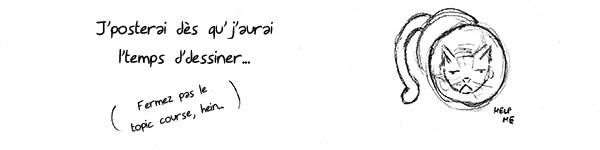 J'posterai dès qu'j'aurai
l'temps d'dessiner...
( Fermez pas le
topic course, hein... )
HELP
ME